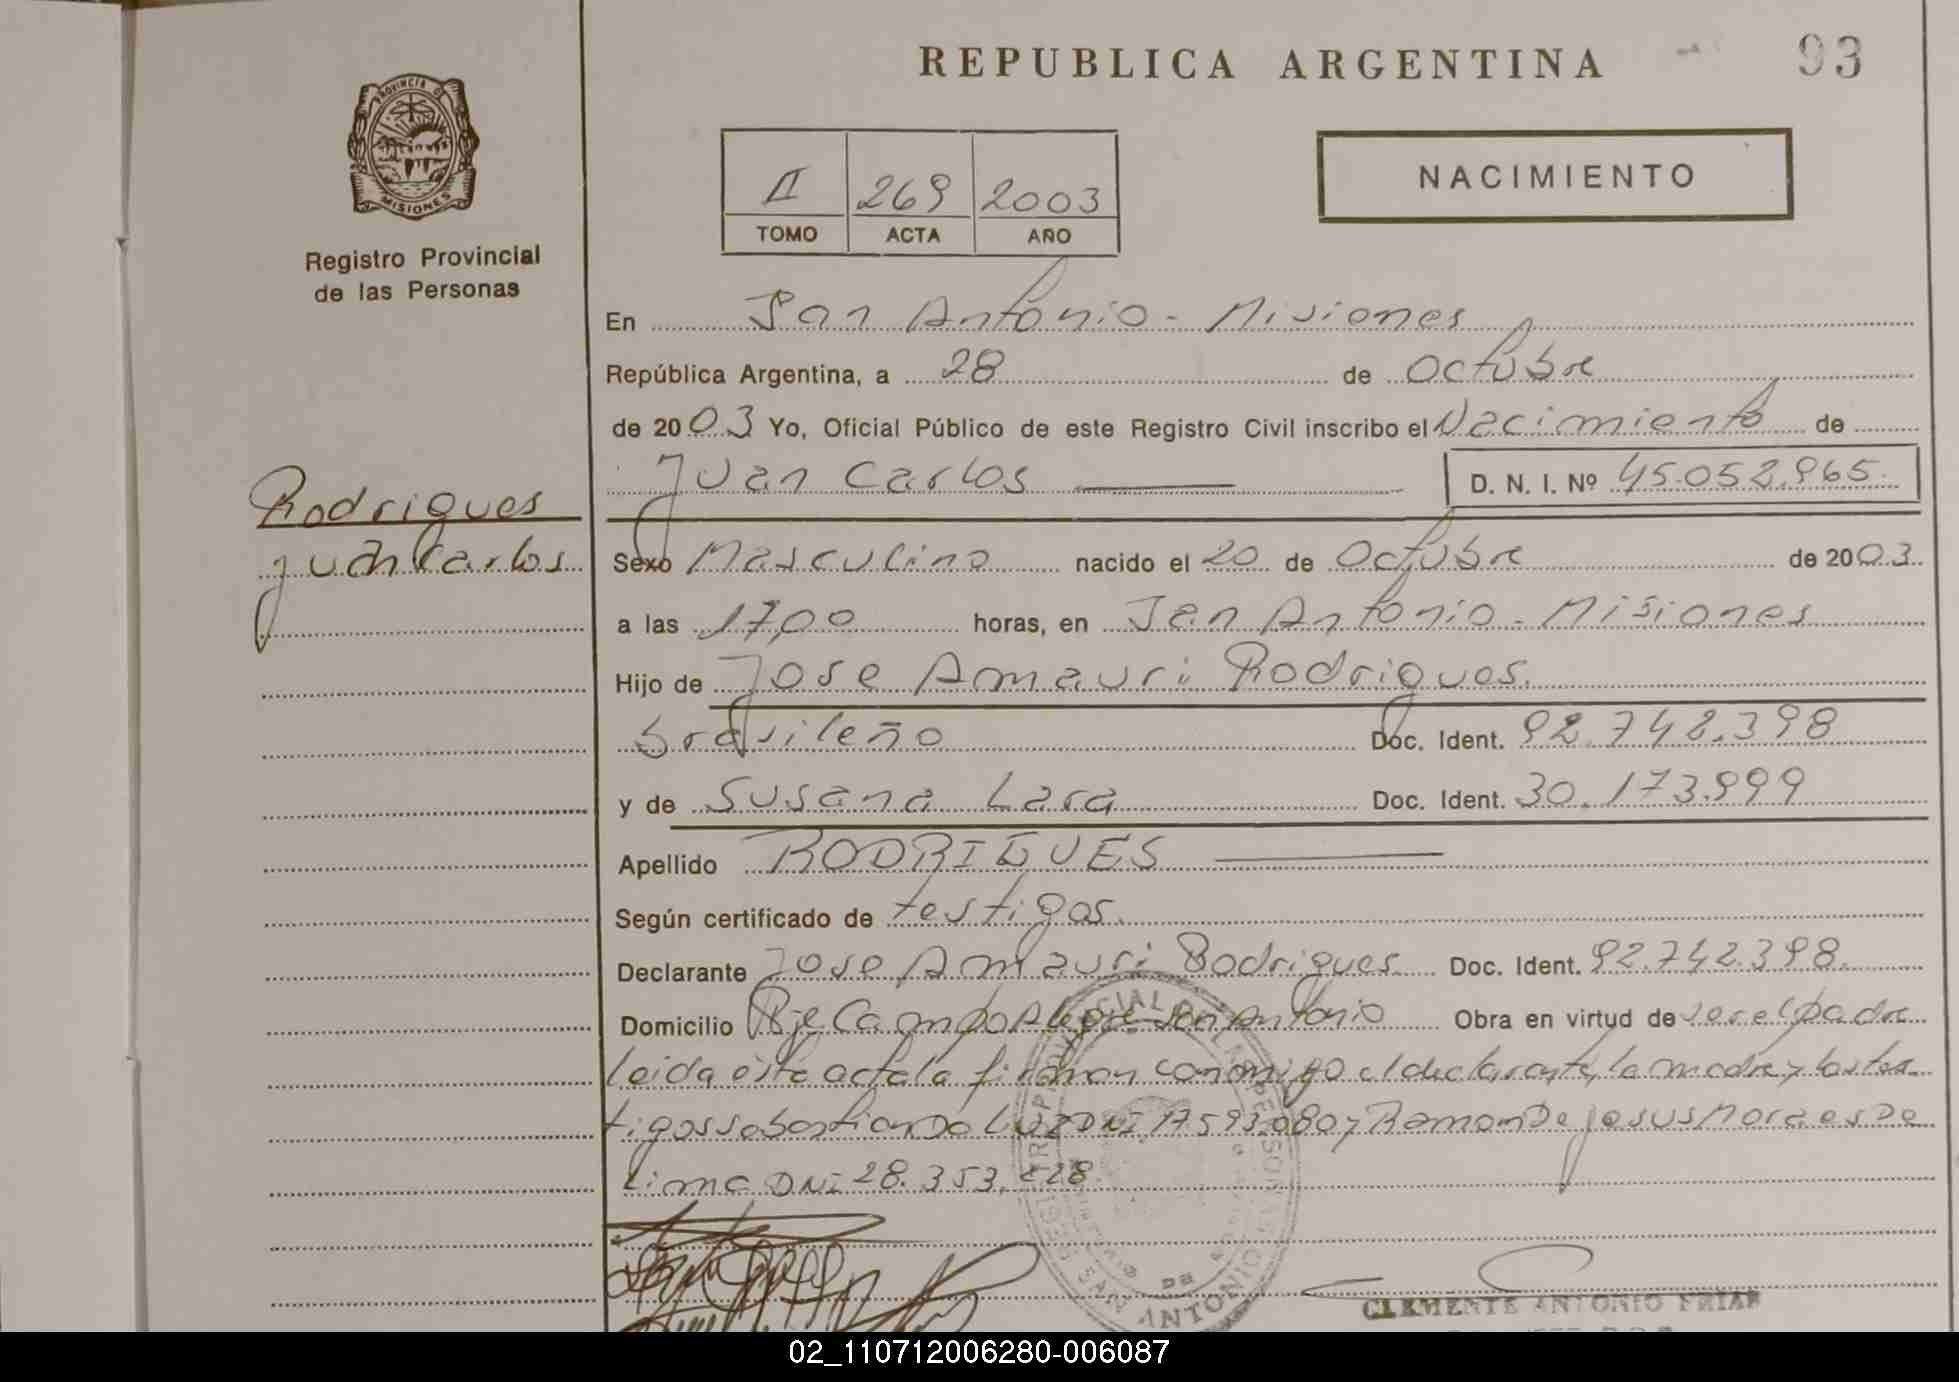 REPUBLICA ARGENTINA
93
PROVINCIA DE
MISIONES
Registro Provincial
de las Personas
II 269 2003
TOMO ACTA AÑO
NACIMIENTO
En San Antonio - Misiones
República Argentina, a 28 de Octubre
de 2003 Yo, Oficial Público de este Registro Civil inscribo el Nacimiento de
Juan Carlos D. N. I. Nº 45.052.965.
Rodrigues
Juan Carlos
Sexo Masculino nacido el 20 de Octubre de 2003
a las 17,00 horas, en San Antonio - Misiones
Hijo de Jose Amauri Rodrigues.
brasileño Doc. Ident. 92.742.398
y de Susana Lara Doc. Ident. 30.173.999
Apellido RODRIGUES
Según certificado de testigos.
Declarante Jose Amauri Rodrigues Doc. Ident. 92.742.398.
Domicilio Pje Campo Alegre San Antonio Obra en virtud de ser el padre
leida esta acta la firman conmigo el declarante, la madre y los tes
tigos Sebastian Do Luz DNI 17593.080 y Ramon De Jesus Moraes De
Lima DNI 28.353.228
SAN ANTONIO
CLEMENTE ANTONIO FRIAS
02_110712006280-006087